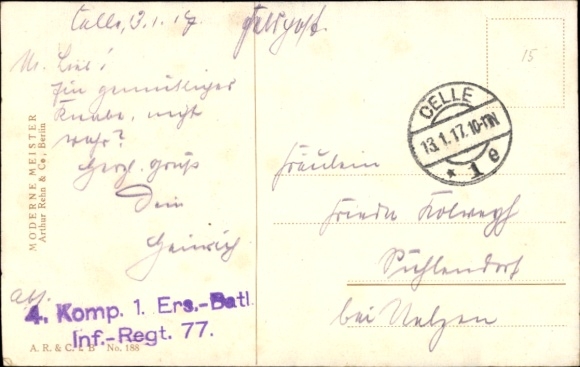 Celle, 13.1.17
Feldpost.
M. Lieb!
Ein gemütliches
Knabe, nicht
wahr?
Herzl. Gruß
Dein
Heinrich
MODERNE MEISTER
Arthur Rehn & Co., Berlin
Abs.
4. Komp. 1. Ers.-Batl.
Inf.-Regt. 77.
A. R. & C. i. B No. 188
15
CELLE
13.1.17.10-11N
* 1 e
Fräulein
Frieda
bei Uelzen